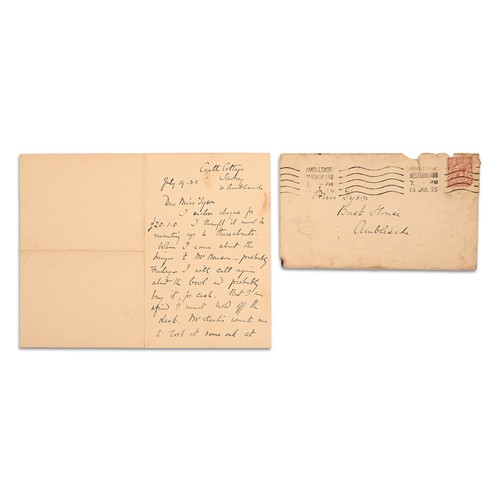 Castle Cottage
Sawrey
n Ambleside
July 19. 35
Dear Miss Tyson
I enclose cheque for
£20.1.0. I thought it must be
mounting up to thereabouts.
When I come about the
to Mr Benson - probably
Friday I will call again
about the bowl and probably
buy it, for cash. But I am
afraid I must hold off the
desk. Mr Heelis wants me
to look at some oak at
AMBLESIDE
WESTMORLAND
PM
AMBLESIDE
WESTMORLAND
7. PM
19 JUL 35
Miss Tyson
Bush House
Ambleside